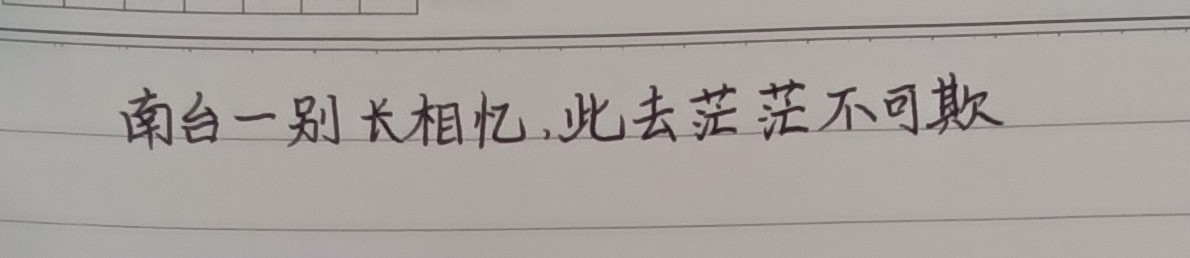 南台一别长相忆,此去茫茫不可欺